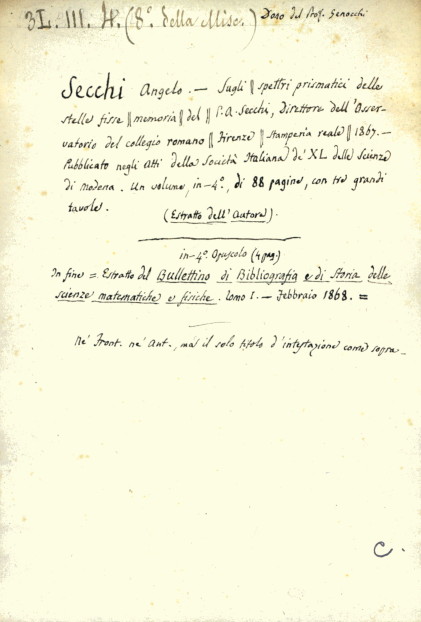 3L. III. 4. (8º della Misc.) Dono del Prof. Genocchi
Secchi Angelo. — Sugli || spettri prismatici delle
stelle fisse || memoria || del || P. A. Secchi, Direttore dell'Osser-
vatorio del collegio romano || Firenze || Stamperia reale || 1867. —
Pubblicato negli Atti della Società Italiana de' XL delle Scienze
di Modena. Un volume, in-4º, di 88 pagine, con tre grandi
tavole.
(Estratto dell'Autore).
in-4º. Opuscolo (4 pag.)
In fine = Estratto del Bullettino di Bibliografia e di Storia delle
scienze matematiche e fisiche. Tomo I. — Febbraio 1868. =
Né Front. né Aut., ma il solo titolo d'intestazione come sopra —
C.